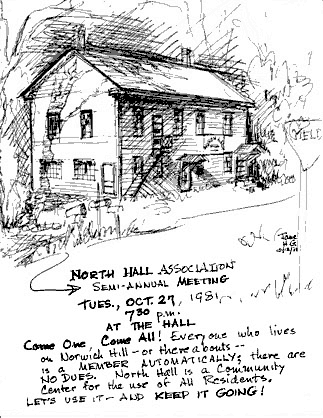 YIELD
NORTH HALL ASSOCIATION
SEMI-ANNUAL MEETING
TUES., OCT. 27, 1981
7:30 p.m.
AT THE HALL
Come One, Come All! Everyone who lives
on Norwich Hill - or thereabouts --
is a MEMBER AUTOMATICALLY; there are
NO DUES. North Hall is a Community
Center for the use of All Residents.
LET'S USE IT - AND KEEP IT GOING!